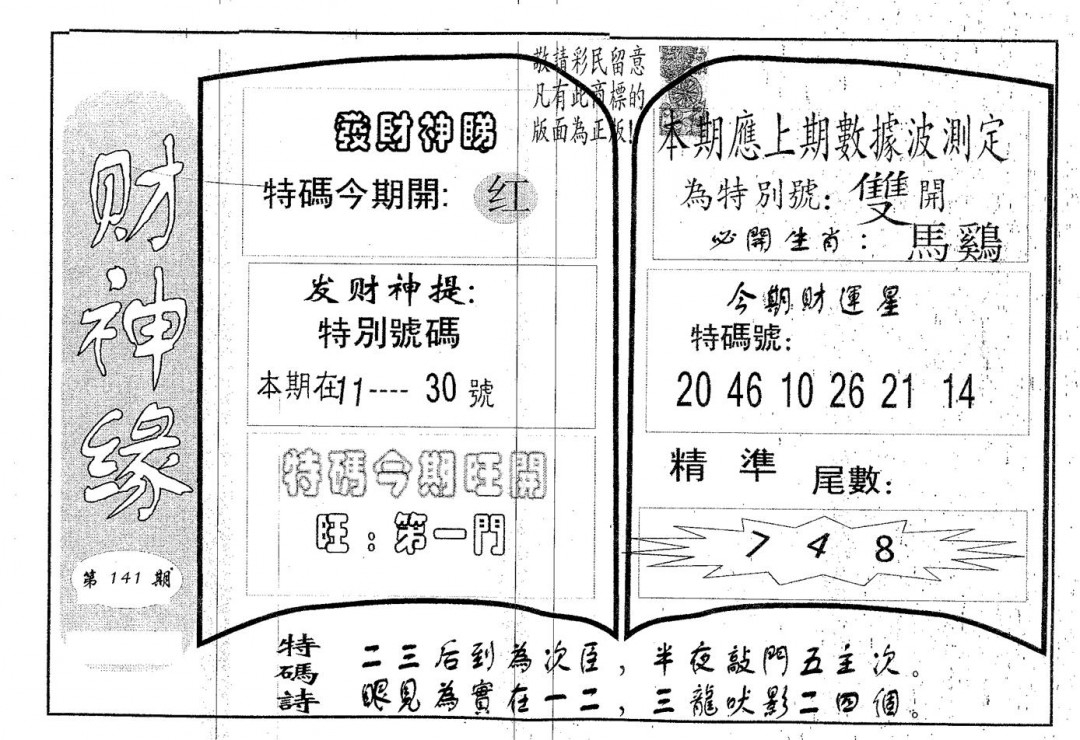 财神緣
第 141 期
敬請彩民留意
凡有此商標的
版面為正版!
發財神睇
特碼今期開: 红
发财神提:
特別號碼
本期在11----30號
特碼今期旺開
旺:第一門
本期應上期數據波測定
為特別號: 雙開
必開生肖: 馬鷄
今期財運星
特碼號:
20 46 10 26 21 14
精準 尾數:
7 4 8
特碼詩
二三后到為次臣,半夜敲門五主次。
眼見為實在一二,三龍吠影二四個。